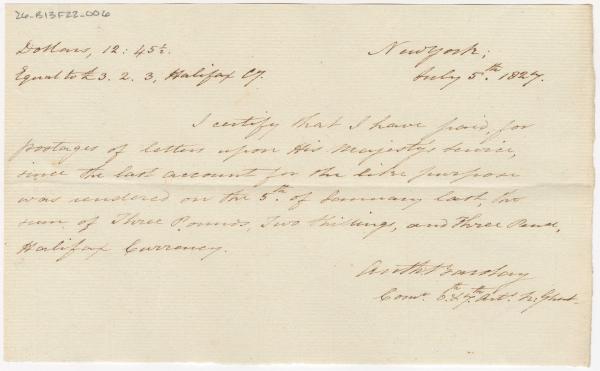 26-B13F22-006
Dollars, 12: 45½.
New York;
Equal to £3. 2. 3, Halifax Cy.
July 5th. 1827.
I certify that I have paid, for
postages of letters upon His Majesty's Service,
since the last account for the like purpose
was rendered on the 5th. of January last, the
sum of Three Pounds, Two Shillings, and Three Pence,
Halifax Currency.
Anth. Barclay
Comr. 6th & 7th Arts. Tr. Ghent.